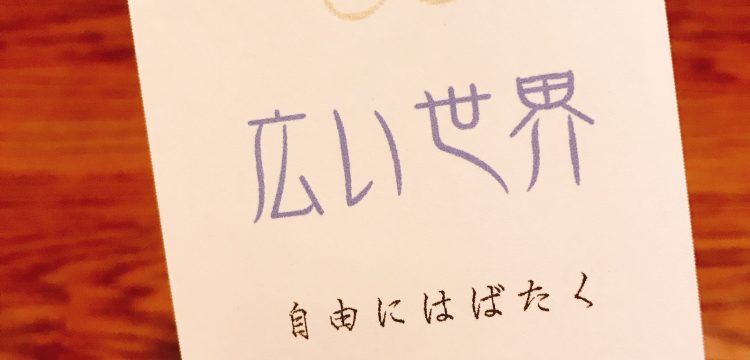 広い世界
自由にはばたく